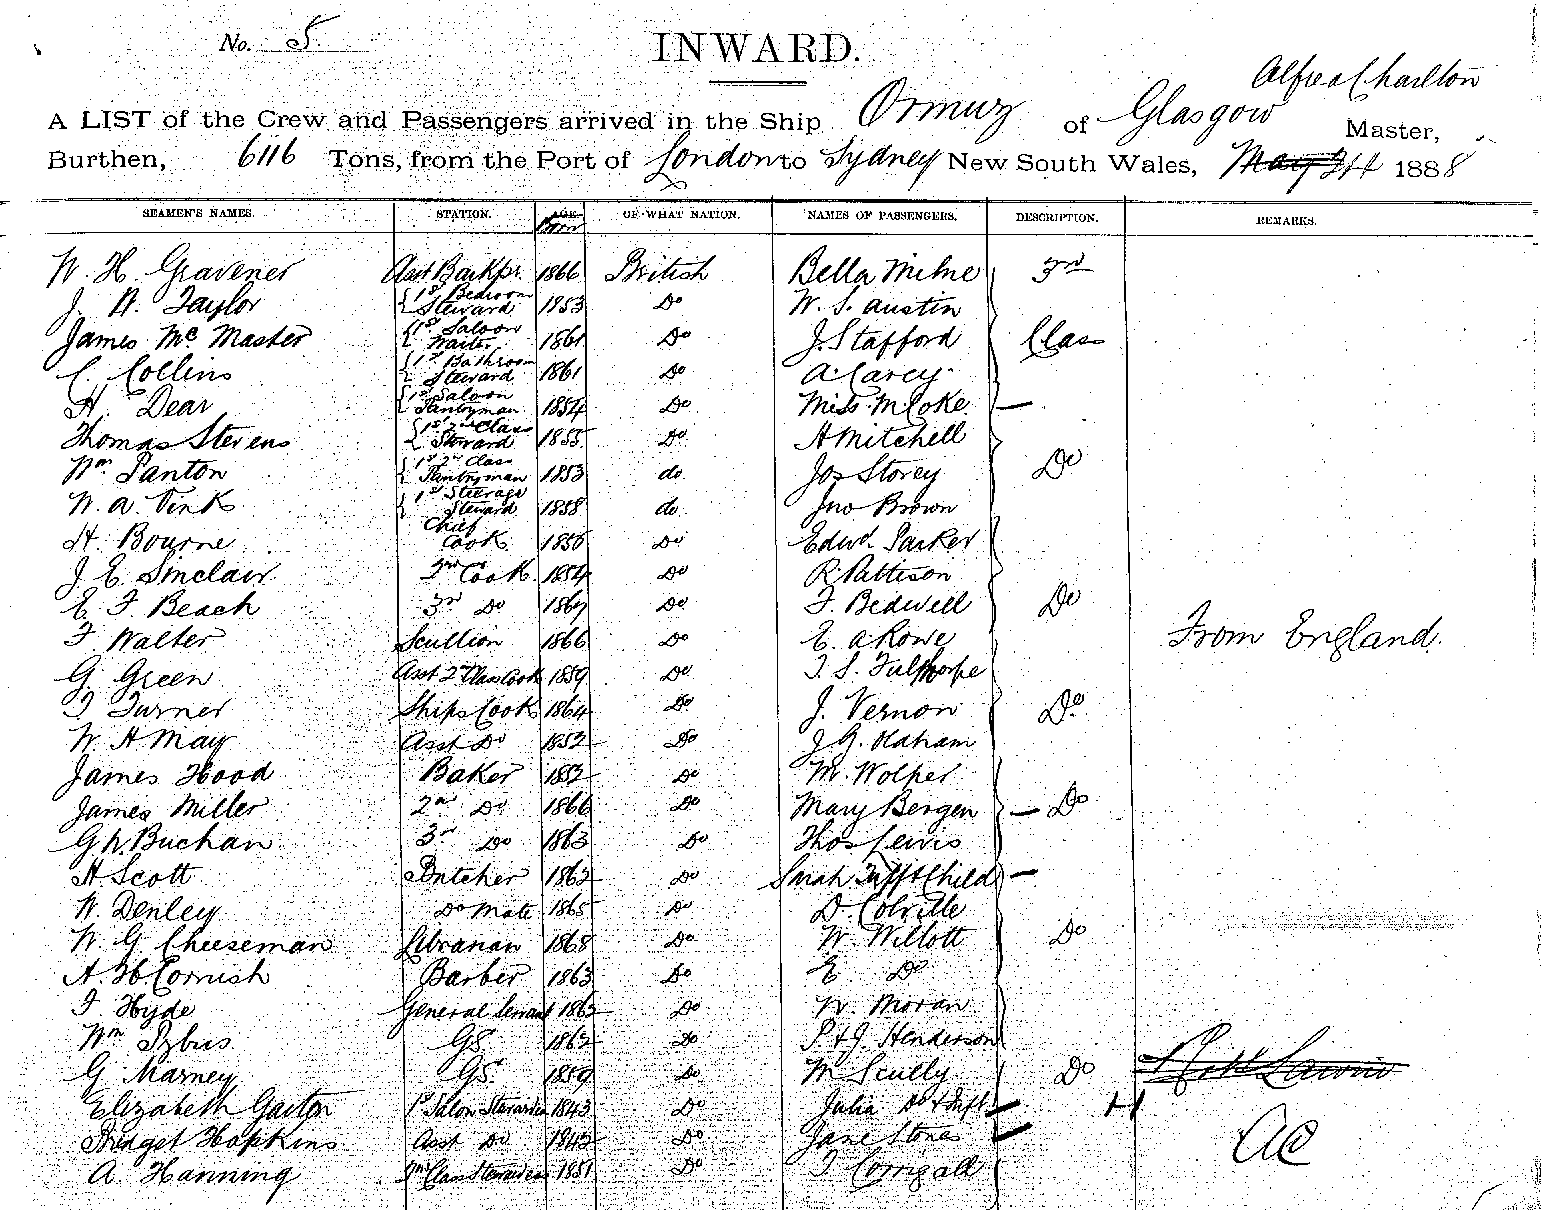 No. 5
INWARD.
Alfred Charlton
A LIST of the Crew and Passengers arrived in the Ship Ormuz of Glasgow Master,
Burthen, 6116 Tons, from the Port of London to Sydney New South Wales, May 24 1888
SEAMEN'S NAMES. STATION. AGE. Born OF WHAT NATION. NAMES OF PASSENGERS. DESCRIPTION. REMARKS.
W. H. Gravener Asst Barkpr. 1866 British Bella Milne 3rd
J. W. Taylor 1st Bedroom Steward 1853 Do W. S. Austin
James McMaster 1st Saloon Waiter 1861 Do J. Stafford Class
C. Collins 1st Bathroom Steward 1861 Do A Carey
H. Dear 1st Saloon Pantryman 1854 Do Miss M. Coke —
Thomas Stevens 1st 2nd Class Steward 1855 Do H Mitchell
Wm Panton 1st 2nd Class Pantryman 1853 do Jos Storey Do
W. A. Vink 1st Steerage Steward 1858 do Jno Brown
H. Bourne Chief Cook 1856 Do Edwd. Parker
J. E. Sinclair 2nd Cook 1854 Do R Pattison
E F Beach 3rd Do 1867 Do F. Bedwell Do
F Walter Scullion 1866 Do E. A Rowe From England.
G Green Asst 2nd Class Cook 1859 Do T. S. Fulthorpe
T Turner Ships Cook 1864 Do J. Vernon Do
W. H May Asst Do 1852 Do J G.
James Hood Baker 1852 Do M. Wolper
James Miller 2nd Do 1866 Do Mary Bergen — Do
G W. Buchan 3rd Do 1863 Do Thos Lewis
H Scott Butcher 1862 Do Sarah Tufft & Child —
W. Denley Do Mate 1865 Do D. Colville
W. G Cheeseman Librarian 1868 Do W Willott Do
A. H. Cornish Barber 1863 Do E Do
F. Hyde General Servant 1862 Do W. Moran
Wm Pybus GS 1862 Do P & J. Henderson
G Marney GS 1859 Do M Scully Do
Elizabeth Garton 1st Salon Stewardess 1843 Do Julia Do & Inft —
Bridget Hopkins Asst Do 1842 Do Jane Stones — AC
A. Hanning 2nd Class Stewardess 1851 Do T Corrigall